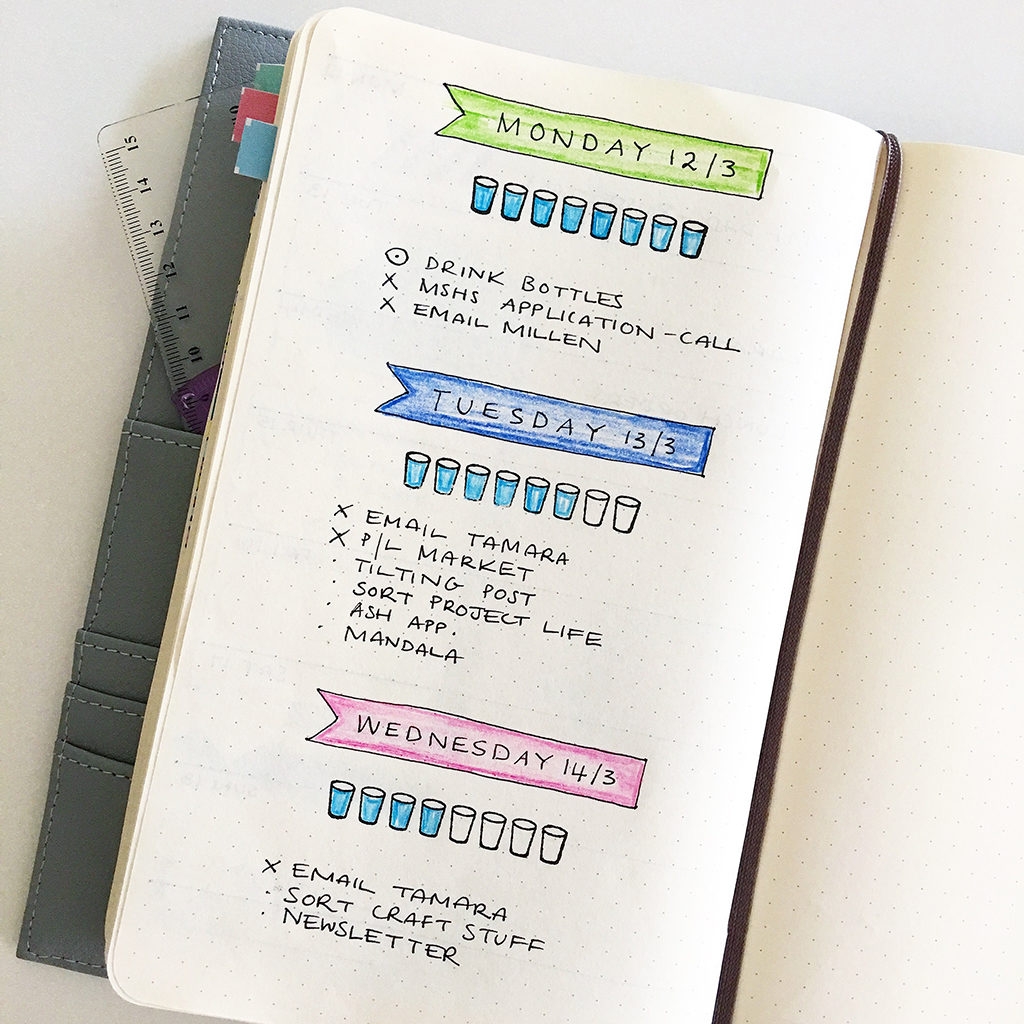 MONDAY 12/3
⊙ DRINK BOTTLES
X MSHS APPLICATION - CALL
X EMAIL MILLEN
TUESDAY 13/3
X EMAIL TAMARA
X P/L MARKET
· TILTING POST
· SORT PROJECT LIFE
· ASH APP.
· MANDALA
WEDNESDAY 14/3
X EMAIL TAMARA
· SORT CRAFT STUFF
· NEWSLETTER
15
14
13
12
11
10